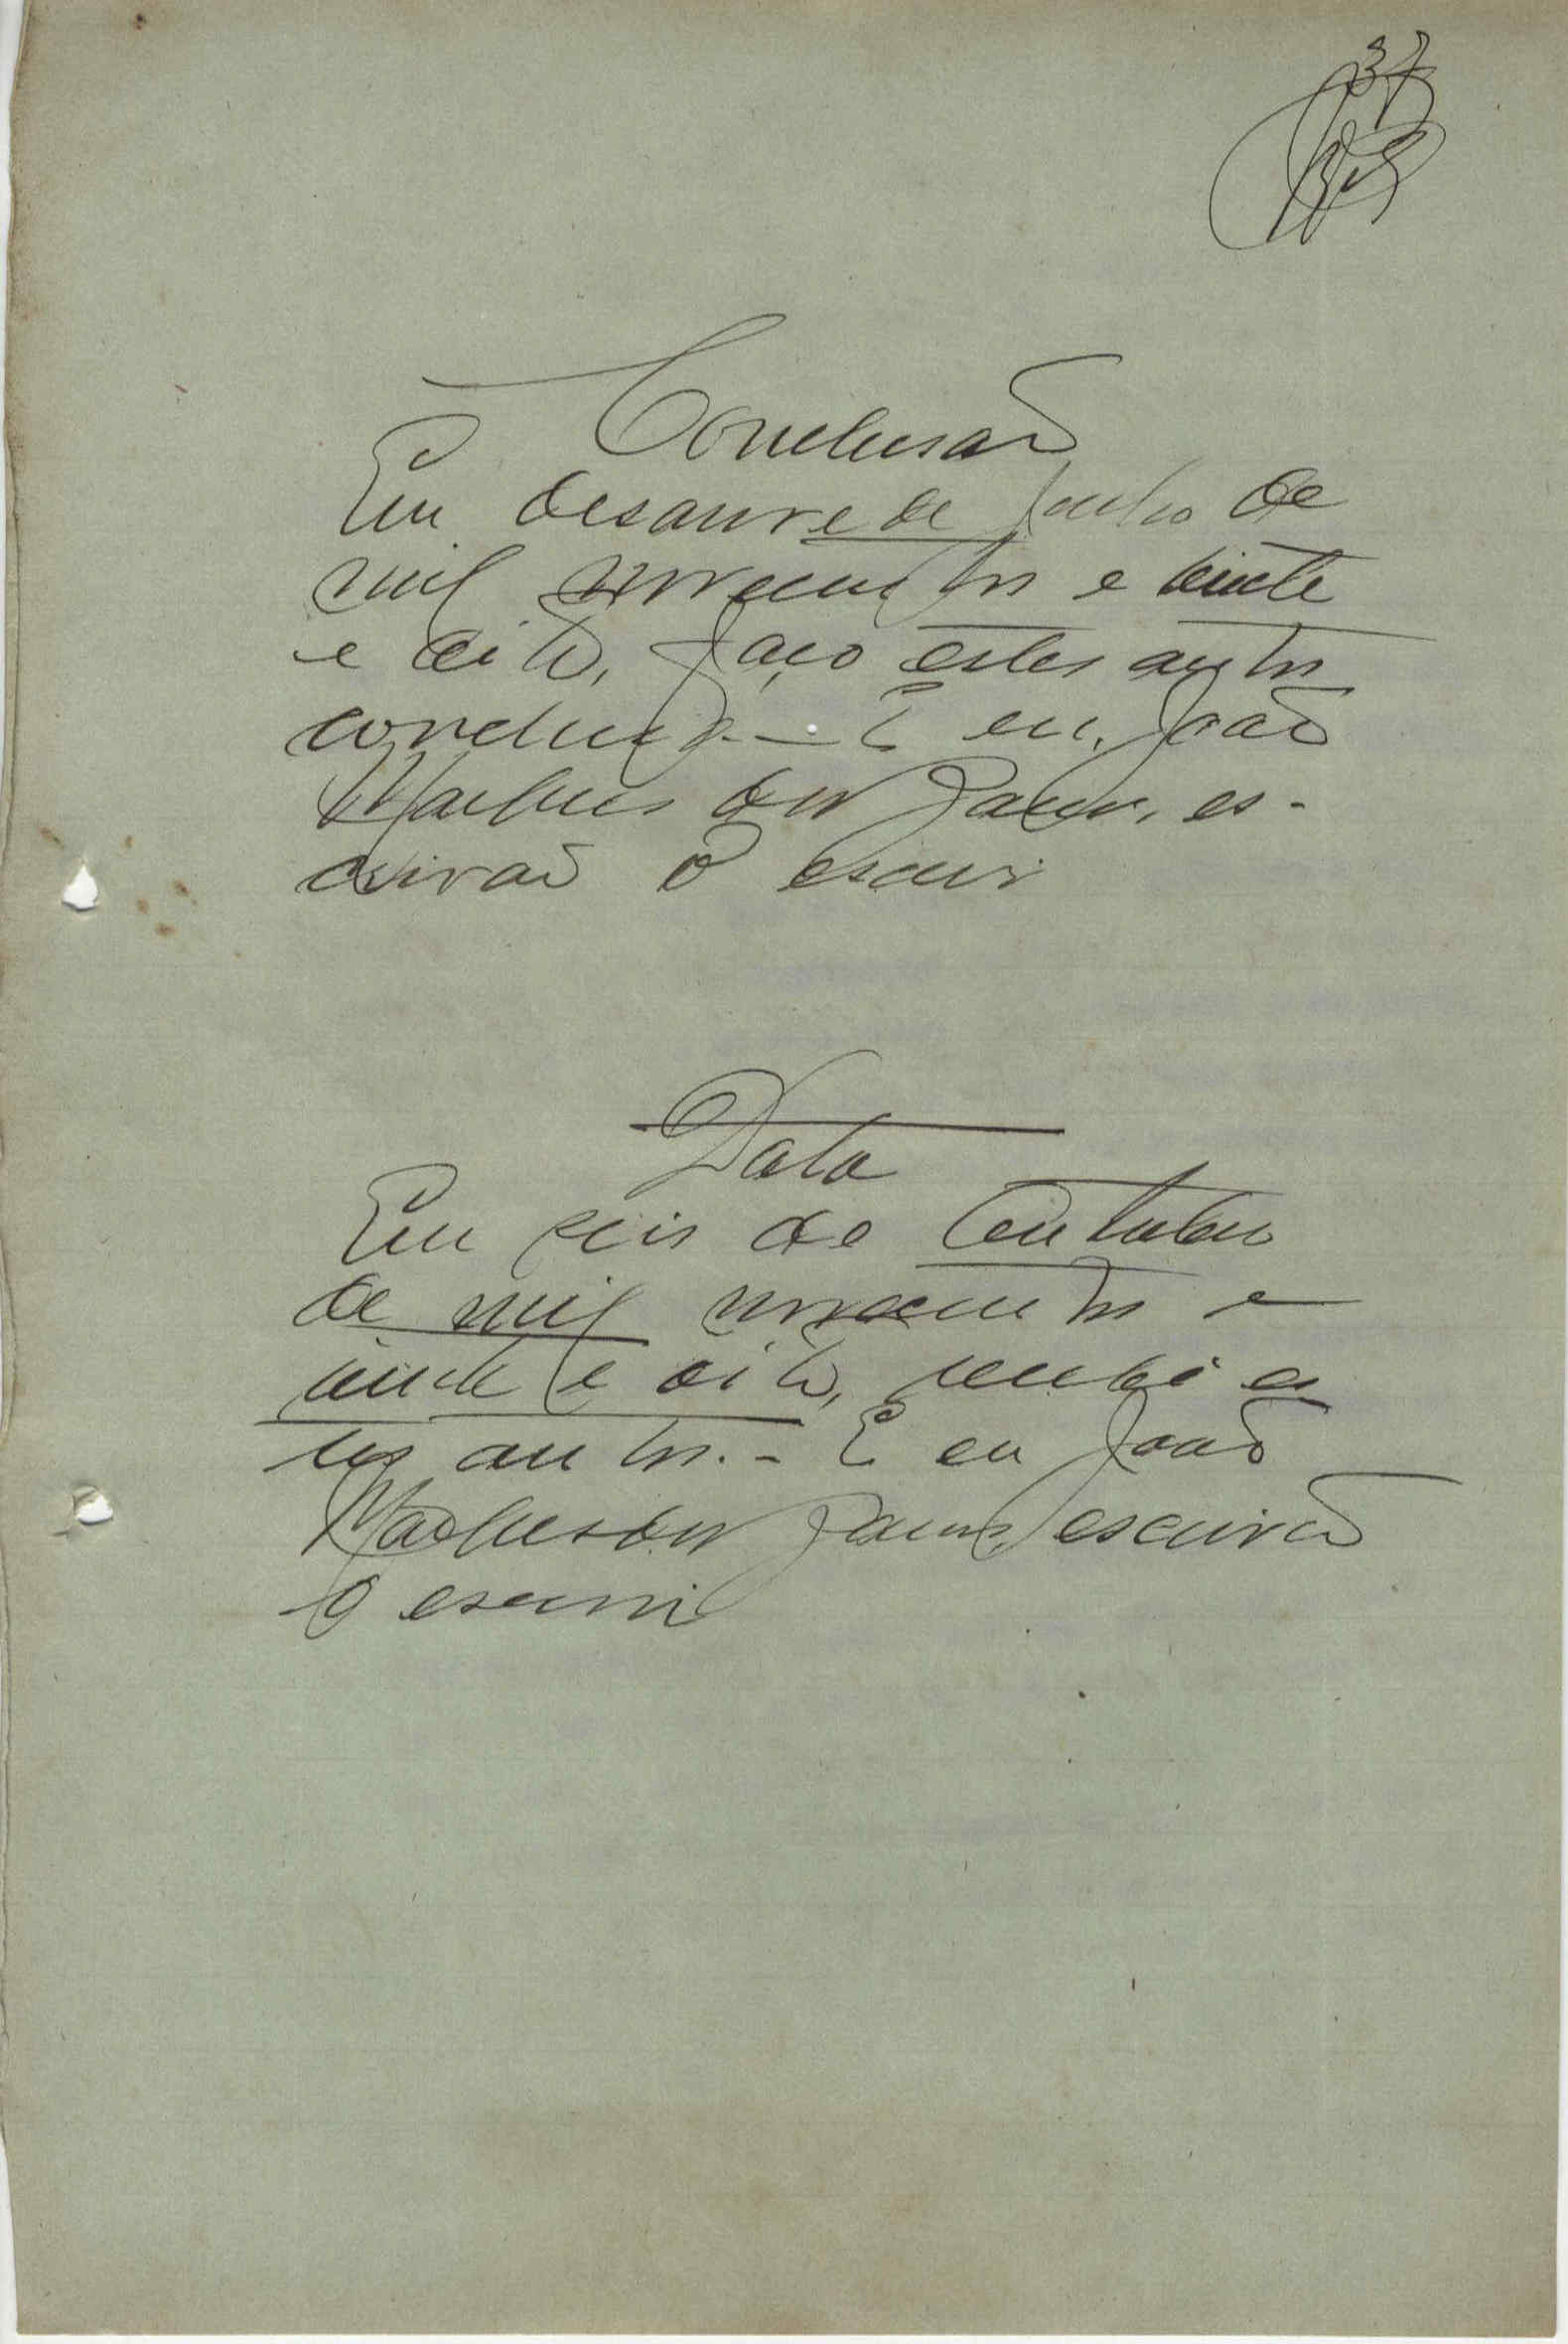 37
Conclusaõ
Em desanove de Julho de
mil novecentos e vinte
e oito, faço estes autos
conclusos. — E eu, Joaõ
es-
crivaõ o escrevi
Data
Em seis de Outubro
de mil novecentos e
vinte e oito, recebi es
tes autos. - E eu Joaõ
escrivaõ
o escrevi